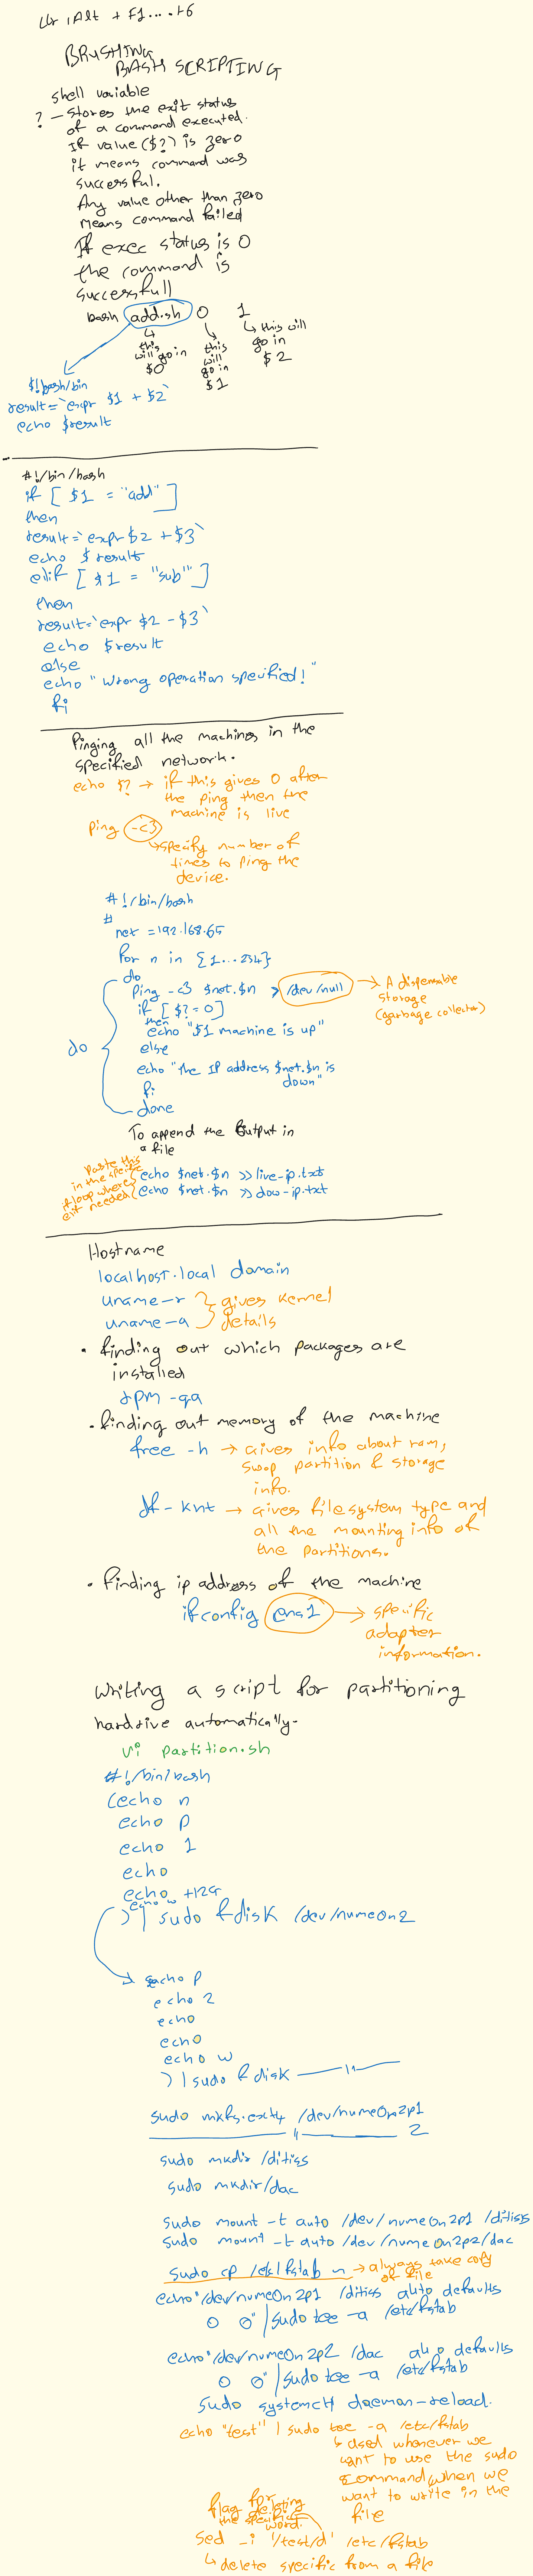 Ctr, Alt + F1....F6
BRUSHING
BASH SCRIPTING
shell variable
? - Stores the exit status
of a command executed.
If value ($?) is zero
it means command was
successful.
Any value other than zero
means command failed
If exec status is 0
the command is
successfull
bash add.sh 0 1
↳ this will go in $0
↳ this will go in $1
↳ this will go in $2
$!bash/bin
result=`expr $1 + $2`
echo $result
#!/bin/bash
if [ $1 = "add" ]
then
result=`expr $2 + $3`
echo $result
elif [ $1 = "sub" ]
then
result=`expr $2 - $3`
echo $result
else
echo "Wrong operation specified!"
fi
Pinging all the machines in the
specified network.
echo $? → if this gives 0 after
the ping then the
machine is live
ping -c3
↳ specify number of
times to ping the
device.
#!/bin/bash
#
net = 192.168.65
for n in {1...254}
do
ping -c3 $net.$n > /dev/null → A dispensable
storage
(garbage collector)
if [ $? = 0 ]
then
echo "$1 machine is up"
else
echo "the IP address $net.$n is
down"
fi
done
do
To append the output in
a file
Paste this
in the specific
if loop where
elif needed
echo $net.$n >> live-ip.txt
echo $net.$n >> dow-ip.txt
Hostname
localhost.local domain
uname -r } gives kernel
uname -a } details
• finding out which packages are
installed
rpm -qa
• finding out memory of the machine
free -h → Gives info about ram,
swap partition & storage
info.
df - knt → gives file system type and
all the mounting info of
the partitions.
• finding ip address of the machine
ifconfig ens1 → specific
adapter
information.
writing a script for partitioning
hardrive automatically.
vi partition.sh
#!/bin/bash
(echo n
echo p
echo 1
echo
echo +12G
echo w
) | sudo fdisk /dev/nvme0n2
echo p
echo 2
echo
echo
echo w
) | sudo fdisk —— 11 ——
sudo mkfs.ext4 /dev/nvme0n2p1
—— 11 —— 2
sudo mkdir /ditiss
sudo mkdir/dac
sudo mount -t auto /dev/nvme0n2p1 /ditiss
sudo mount -t auto /dev/nvme0n2p2/dac
sudo cp /etc/fstab ~ → always take copy
of file
echo "/dev/nvme0n2p1 /ditiss auto defaults
0 0" | sudo tee -a /etc/fstab
echo "/dev/nvme0n2p2 /dac auto defaults
0 0" | sudo tee -a /etc/fstab
sudo systemctl daemon-reload.
echo "test" | sudo tee -a /etc/fstab
↳ used whenever we
want to use the sudo
command, when we
want to write in the
file
flag for
deleting
the specific
word.
sed -i '/test/d' /etc/fstab
↳ delete specific from a file